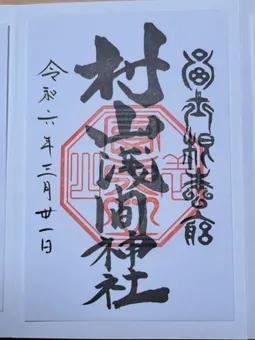 富士根本宮
村山浅間神社
令和六年三月廿一日